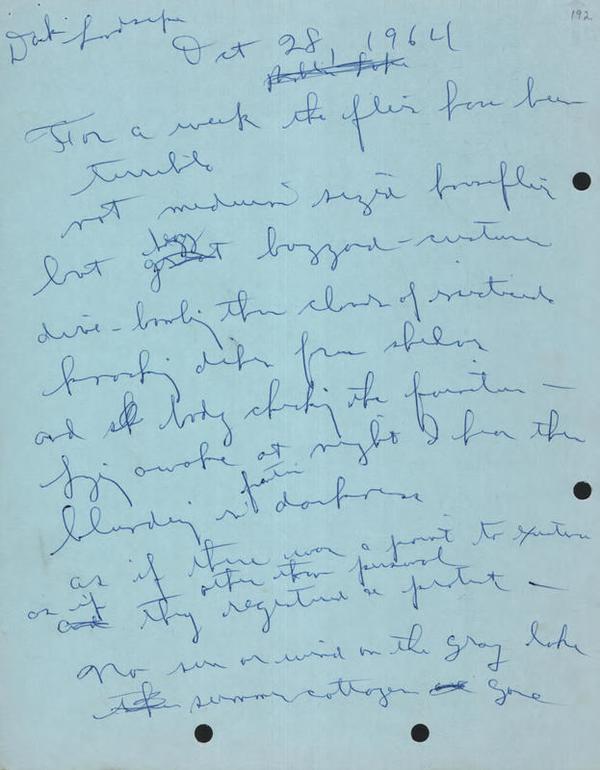 192
Dark Landscape
Oct 28, 1964
For a week the flies have been
terrible
not medium sized houseflies
but buzzard-
dive-bombing thru clouds of
knocking dishes from shelves
and body checking the furniture —
lying awake at night I hear them
blundering in darkness
as if there was a point to existence
other than personal
as if they registered a protest —
No sun or wind on the gray lake
summer cottagers gone